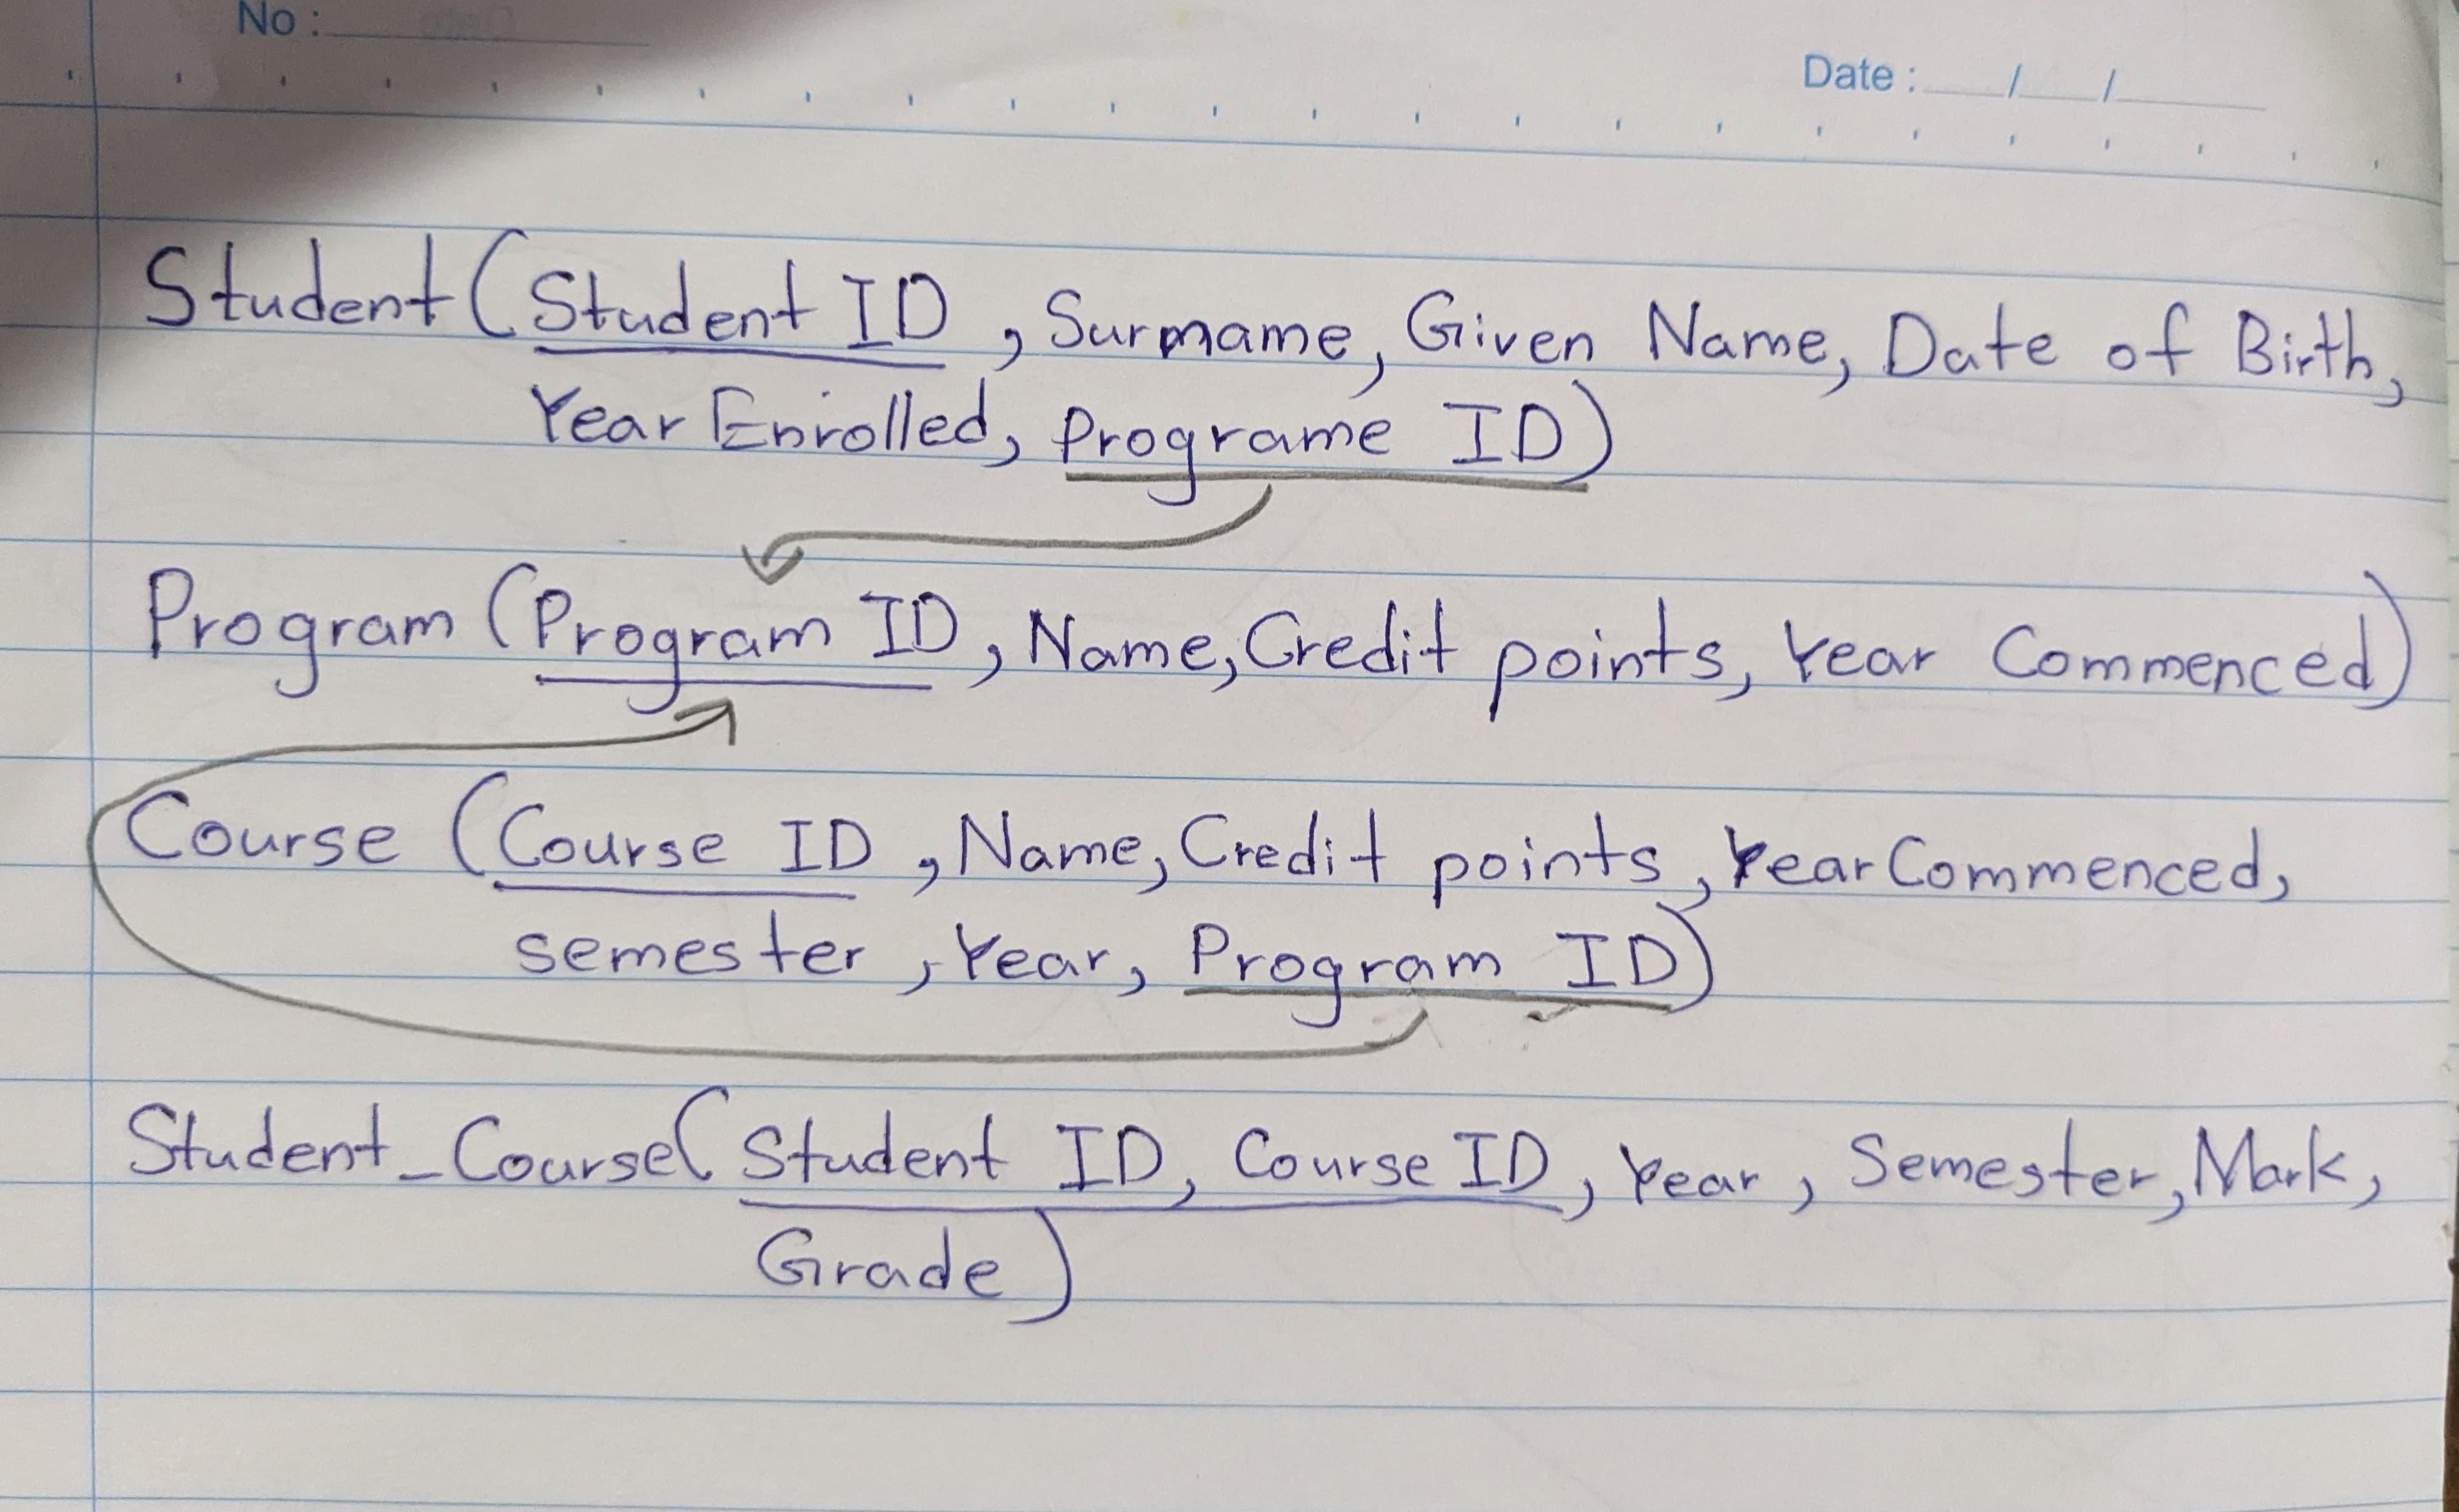 No :
Date : / /
Student (Student ID, Surmame, Given Name, Date of Birth,
Year Enrolled, Programe ID)
Program (Program ID, Name, Credit points, Year Commenced)
Course (Course ID, Name, Credit points, Year Commenced,
semester, Year, Program ID)
Student_Course(Student ID, Course ID, Year, Semester, Mark,
Grade)